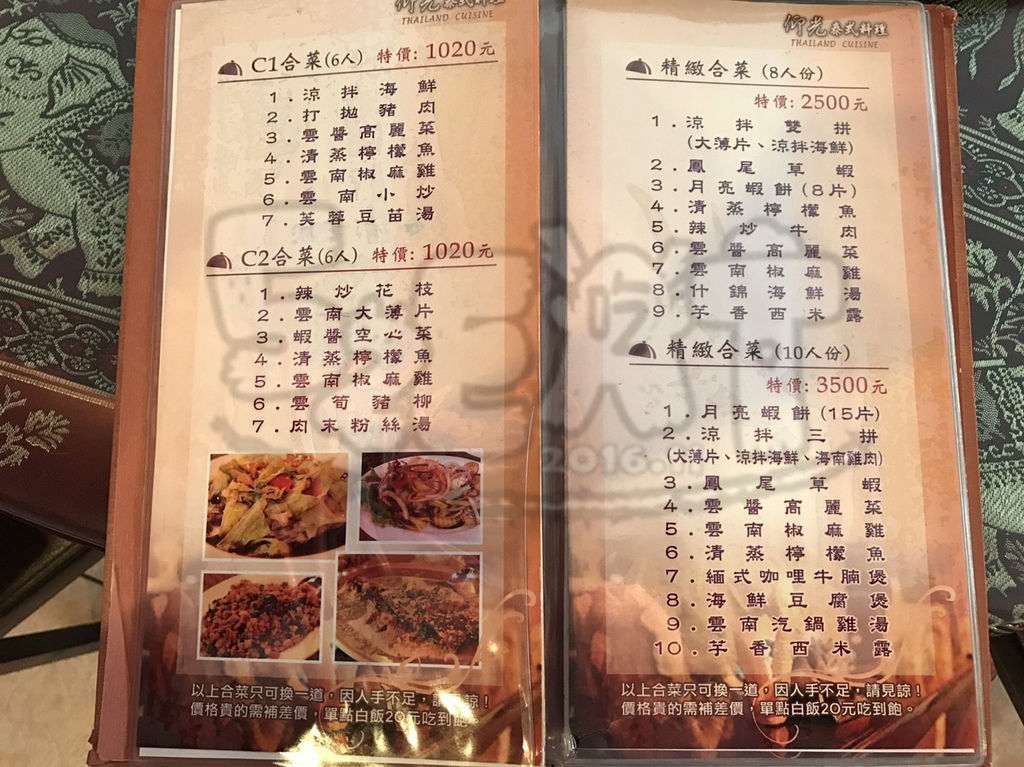 仰光泰式料理
THAILAND CUISINE
C1合菜(6人) 特價: 1020元
1.涼拌海鮮
2.打拋豬肉
3.雲醬高麗菜
4.清蒸檸檬魚
5.雲南椒麻雞
6.雲南小炒
7.芙蓉豆苗湯
C2合菜(6人) 特價: 1020元
1.辣炒花枝
2.雲南大薄片
3.蝦醬空心菜
4.清蒸檸檬魚
5.雲南椒麻雞
6.雲筍豬柳
7.肉末粉絲湯
以上合菜只可換一道，因人手不足，請見諒！
價格貴的需補差價，單點白飯20元吃到飽。
仰光泰式料理
THAILAND CUISINE
精緻合菜 (8人份)
特價: 2500元
1.涼拌雙拼
(大薄片、涼拌海鮮)
2.鳳尾草蝦
3.月亮蝦餅(8片)
4.清蒸檸檬魚
5.辣炒牛肉
6.雲醬高麗菜
7.雲南椒麻雞
8.什錦海鮮湯
9.芋香西米露
精緻合菜 (10人份)
特價: 3500元
1.月亮蝦餅(15片)
2.涼拌三拼
(大薄片、涼拌海鮮、海南雞肉)
3.鳳尾草蝦
4.雲醬高麗菜
5.雲南椒麻雞
6.清蒸檸檬魚
7.緬式咖哩牛腩煲
8.海鮮豆腐煲
9.雲南汽鍋雞湯
10.芋香西米露
以上合菜只可換一道，因人手不足，請見諒！
價格貴的需補差價，單點白飯20元吃到飽。
吃
2016.